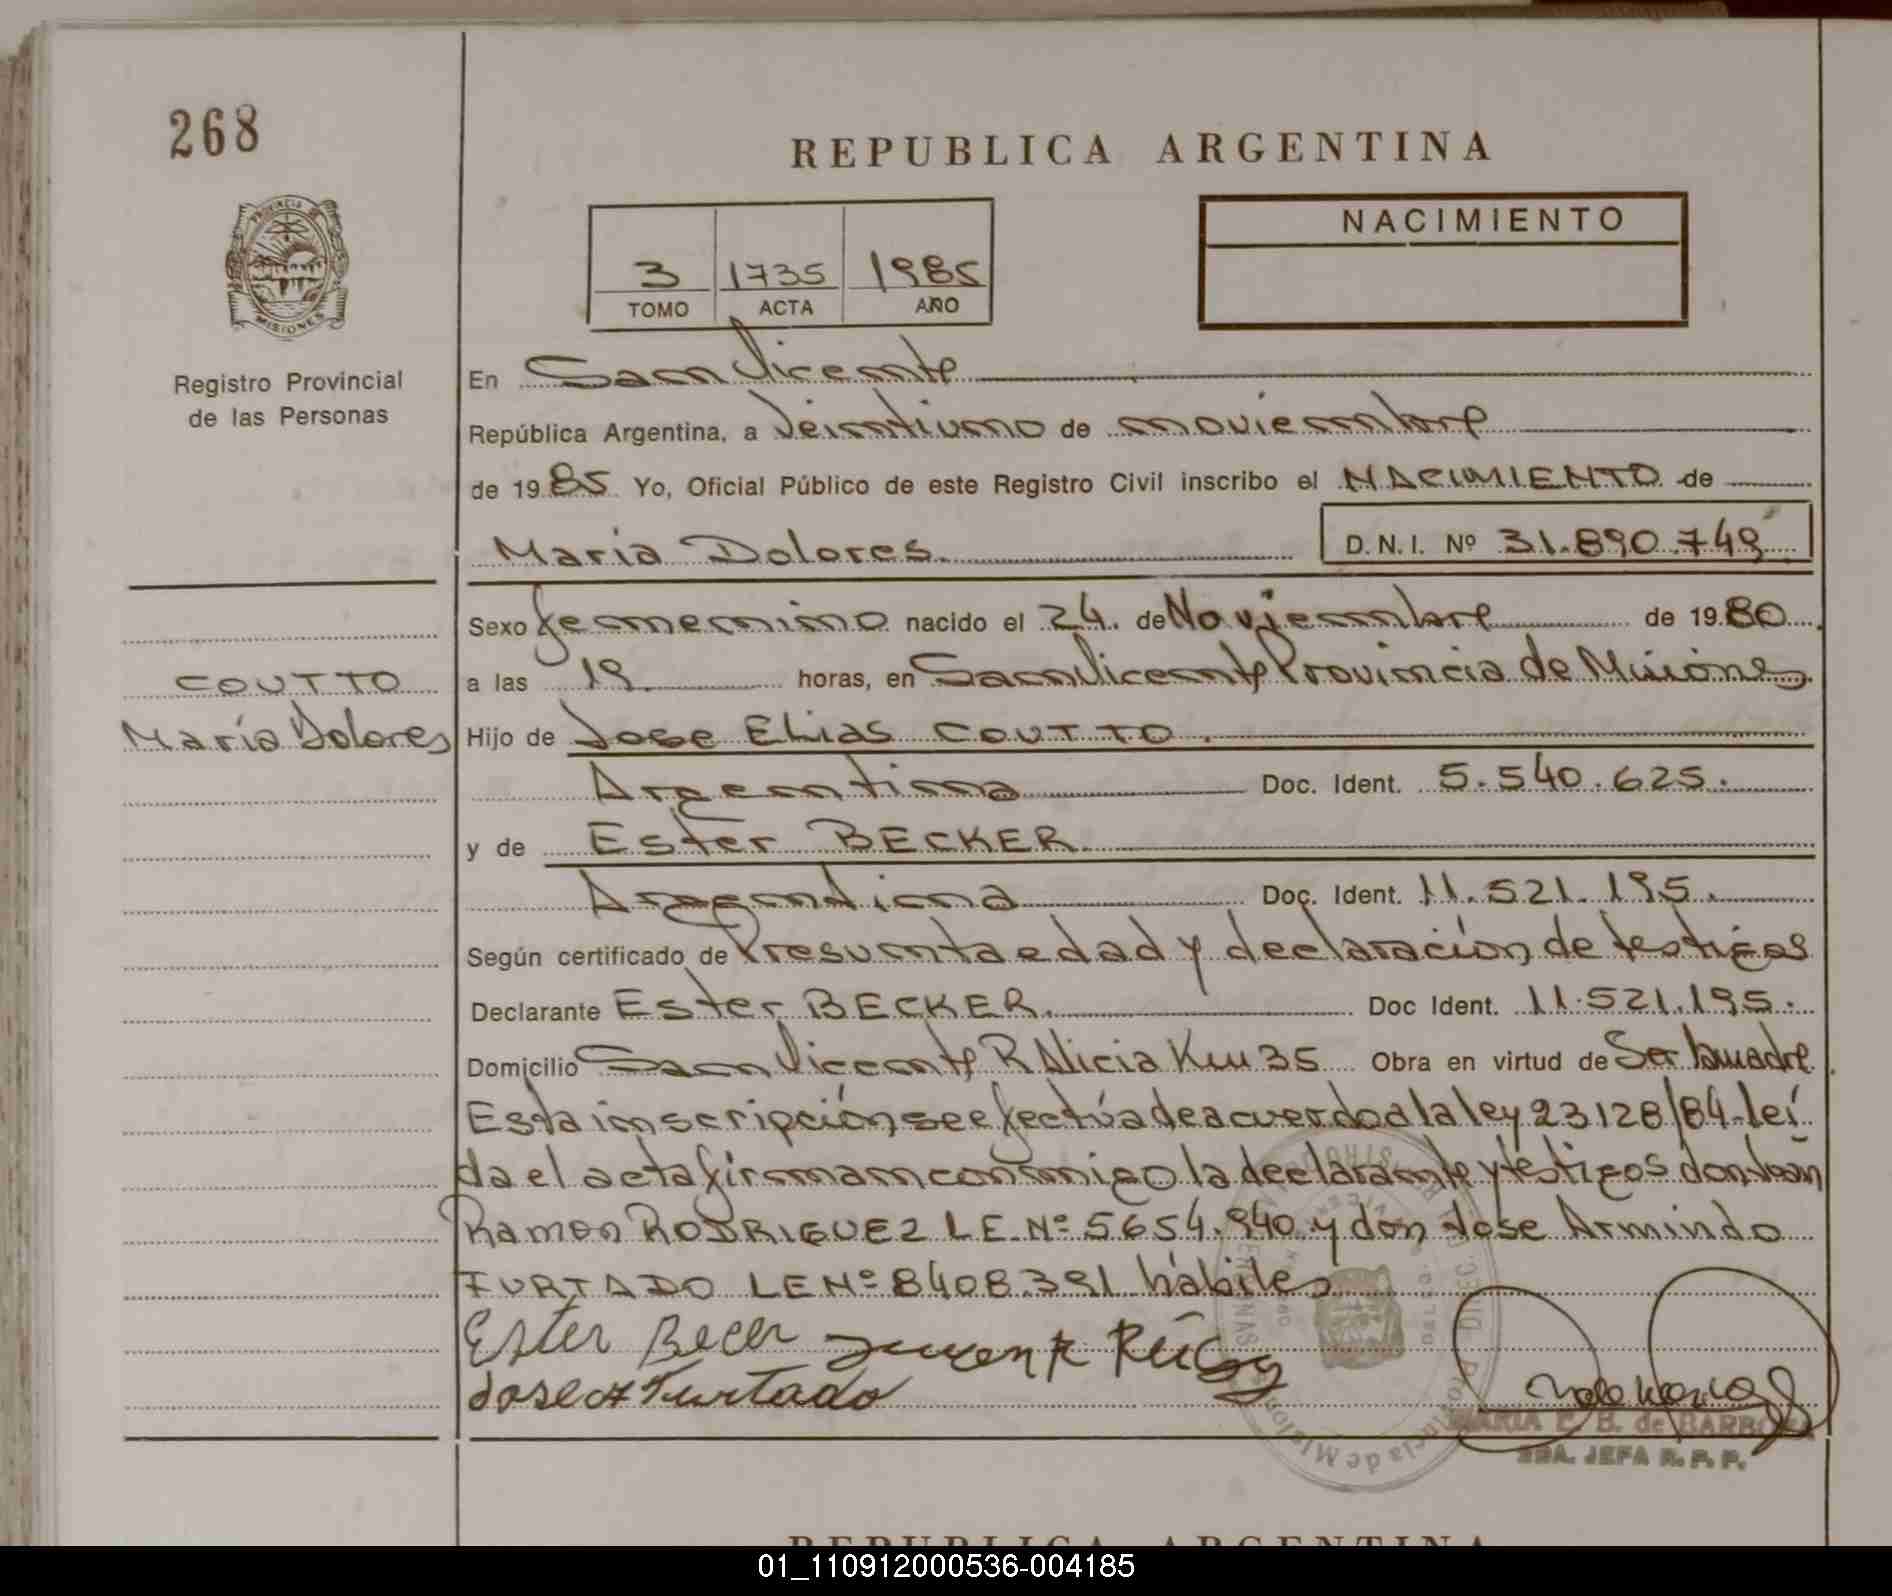 268
REPUBLICA ARGENTINA
PROVINCIA DE
MISIONES
NACIMIENTO
3 1735 1985
TOMO ACTA AÑO
Registro Provincial
de las Personas
En San Vicente
República Argentina, a Veintiuno de noviembre
de 1985 Yo, Oficial Público de este Registro Civil inscribo el NACIMIENTO de
Maria Dolores. D.N.I. Nº 31.890.749
Sexo femenino nacido el 24. de Noviembre de 1980
COUTTO
María Dolores
a las 19 horas, en San Vicente Provincia de Misiones
Hijo de Jose Elias COUTTO.
Argentina Doc. Ident. 5.540.625.
y de Ester BECKER
Argentina Doc. Ident. 11.521.195.
Según certificado de Presunta edad y declaración de testigos
Declarante Ester BECKER. Doc Ident. 11.521.195.
Domicilio San Vicente R Alicia Km 35 Obra en virtud de Ser la madre
Esta inscripción se efectúa de acuerdo a la ley 23128/84-leí
da el acta firman conmigo la declarante y testigos don Juan
Ramon RODRIGUEZ LE.Nº 5654.940 y don Jose Armindo
FURTADO LE Nº 8408.391 hábiles
Ester Becer
Jose A Furtado
Provincia de Misiones
MARIA E. B. de BARBOZA
JEFA R. P. P.
REPUBLICA ARGENTINA
01_110912000536-004185